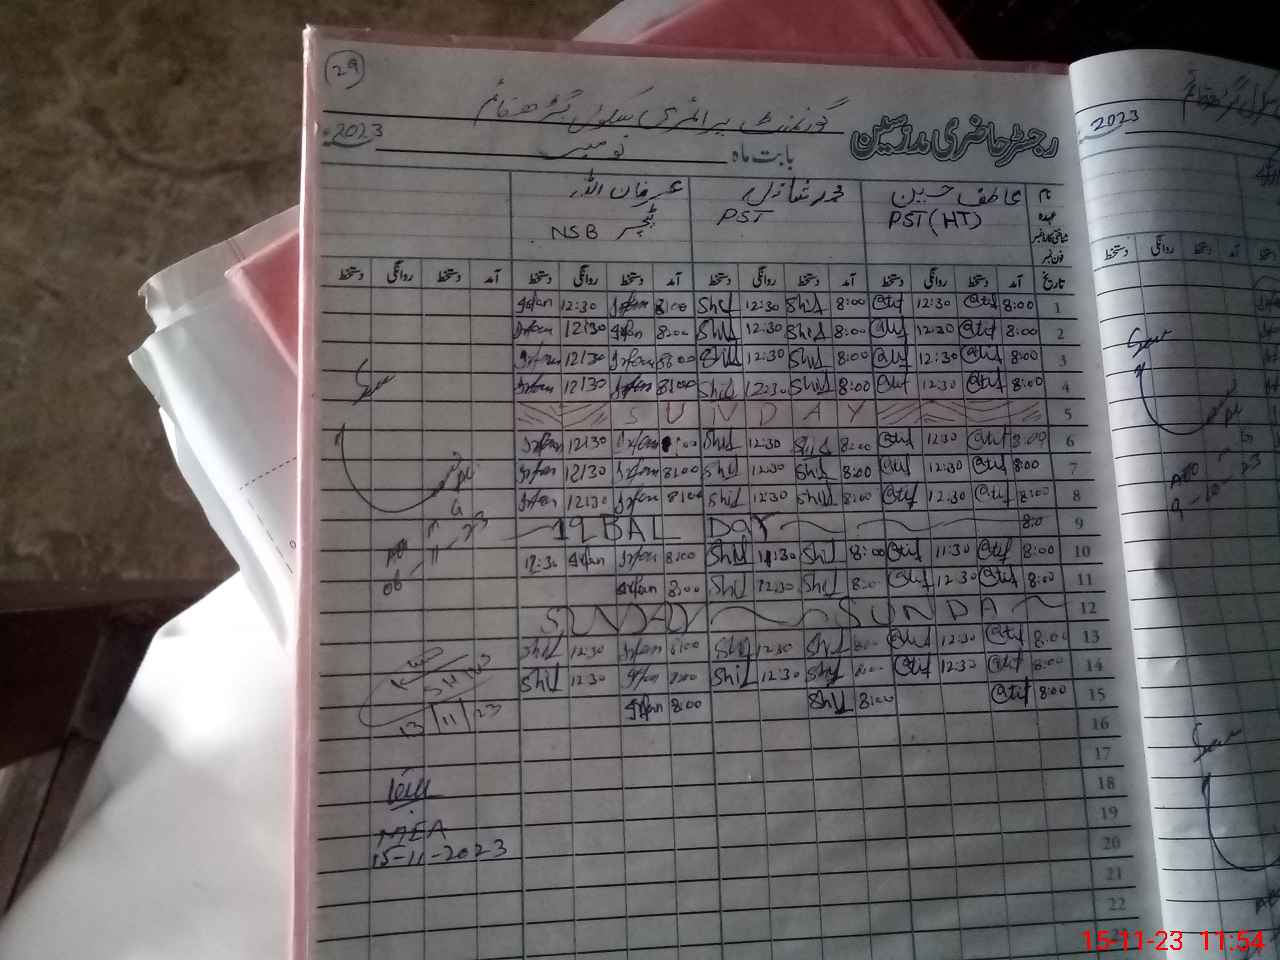 29
گورنمنٹ پرائمری سکول
رجسٹر حاضری مدرسین
بابت ماہ نومبر 2023
نام عاطف حسین محمد شاذل عرفان اللہ
عہدہ PST (HT) PST ٹیچر NSB
تاریخ آمد دستخط روانگی دستخط آمد دستخط روانگی دستخط آمد دستخط روانگی دستخط آمد دستخط روانگی دستخط
1 8:00 @tif 12:30 @tif 8:00 Shil 12:30 Shil 8:00 Irfan 12:30 Irfan
2 8:00 @tif 12:30 @tif 8:00 Shil 12:30 Shil 8:00 Irfan 12:30 Irfan
3 8:00 @tif 12:30 @tif 8:00 Shil 12:30 Shil 8:00 Irfan 12:30 Irfan
4 8:00 @tif 12:30 @tif 8:00 Shil 12:30 Shil 8:00 Irfan 12:30 Irfan
5 SUNDAY
6 8:00 @tif 12:30 @tif 8:00 Shil 12:30 Shil 8:00 Irfan 12:30 Irfan
7 8:00 @tif 12:30 @tif 8:00 Shil 12:30 Shil 8:00 Irfan 12:30 Irfan
8 8:00 @tif 12:30 @tif 8:00 Shil 12:30 Shil 8:00 Irfan 12:30 Irfan
9 8:0 IQBAL DAY
10 8:00 @tif 11:30 @tif 8:00 Shil 11:30 Shil 8:00 Irfan Irfan 12:30
11 8:00 @tif 12:30 @tif 8:00 Shil 12:30 Shil 8:00 Irfan
12 SUNDAY SUNDA
13 8:00 @tif 12:30 @tif 8:00 Shil 12:30 Shil 8:00 Irfan 12:30 Shil
14 8:00 @tif 12:30 @tif 8:00 Shil 12:30 Shil 8:00 Irfan 12:30 Shil
15 8:00 @tif 8:00 Shil 8:00 Irfan
16
17
18
19
20
21
22
13/11/23
MEA
15-11-2023
2023
15-11-23 11:54